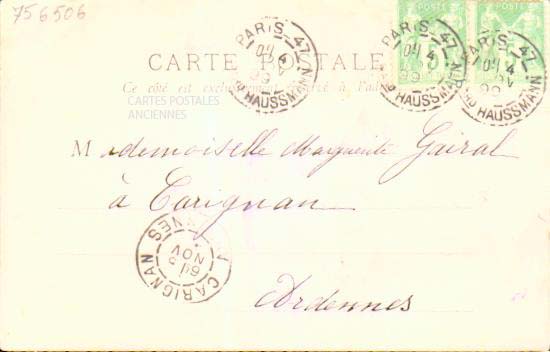 756506
POSTE POSTE
PARIS 47 4 Bd HAUSSMANN
PARIS 47 4 99 Bd HAUSSMANN
PARIS 47 4 99 Bd HAUSSMANN
CARTE POSTALE
Ce côté est exclusivement réservé à l'adresse
CARTES POSTALES
ANCIENNES
Mademoiselle Marguerite Gairal
à Carignan
CARIGNAN NOV 99
Ardennes